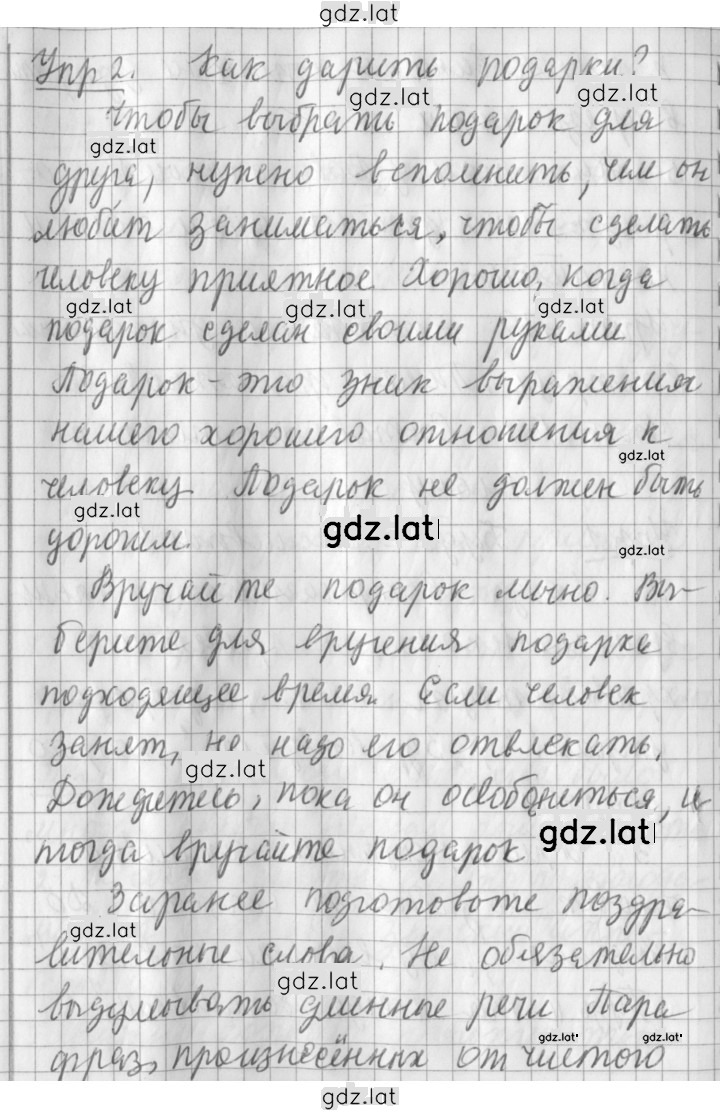 gdz.lat
Упр 2. Как дарить подарки?
gdz.lat gdz.lat
Чтобы выбрать подарок для
gdz.lat
друга, нужно вспомнить, чем он
любит заниматься, чтобы сделать
человеку приятное Хорошо, когда
gdz.lat gdz.lat gdz.lat
подарок сделан своими руками
Подарок - это знак выражения
нашего хорошего отношения к
gdz.lat
человеку. Подарок не должен быть
gdz.lat gdz.lat gdz.lat
дорогим.
Вручайте подарок лично. Вы-
берите для вручения подарка
подходящее время. Если человек
занят, не надо его отвлекать.
gdz.lat
Дождитесь, пока он освободиться, и
gdz.lat
тогда вручайте подарок
Заранее подготовьте поздра-
gdz.lat
вительные слова. Не обязательно
gdz.lat
выдумывать длинные речи Пара
gdz.lat gdz.lat
фраз, произнесённых от чистого
gdz.lat